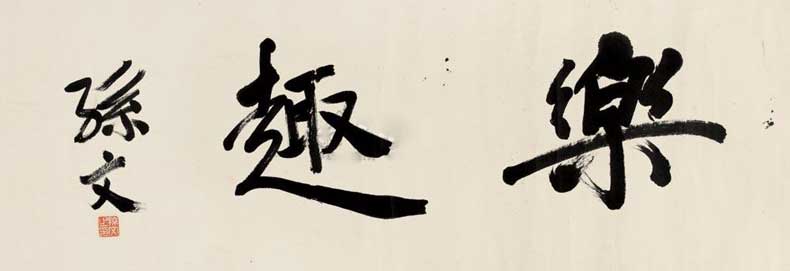 樂趣
孫文